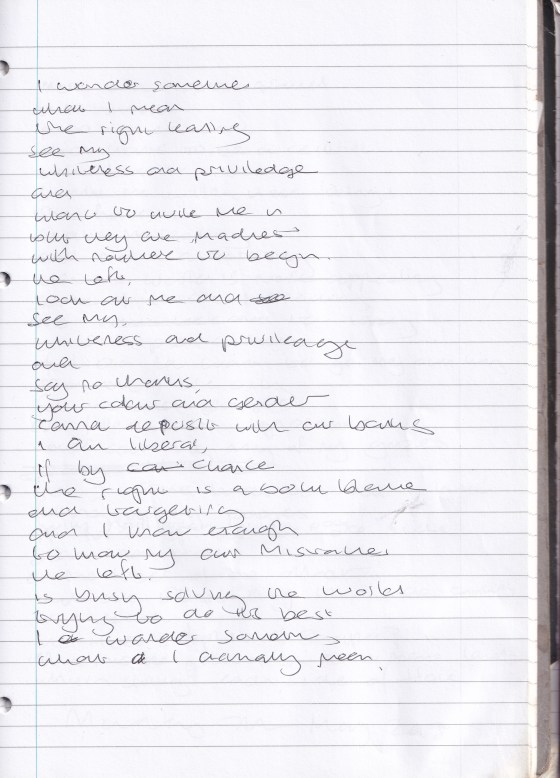 I wonder sometimes
what I mean
the right leaning
see my
whiteness and priviledge
and
want to invite me in
but they are madness
with nowhere to begin.
the left,
look at me and see
see my,
whiteness and priviledge
and
say no thanks,
your colour and gender
canna deposit with our banks
I am liberal,
if by can chance
the right is a blame
and targeting
and I know enough
to know my own mistakes
the left.
is busy saving the world
trying to do its best
I wonder sometimes
what I actually mean.